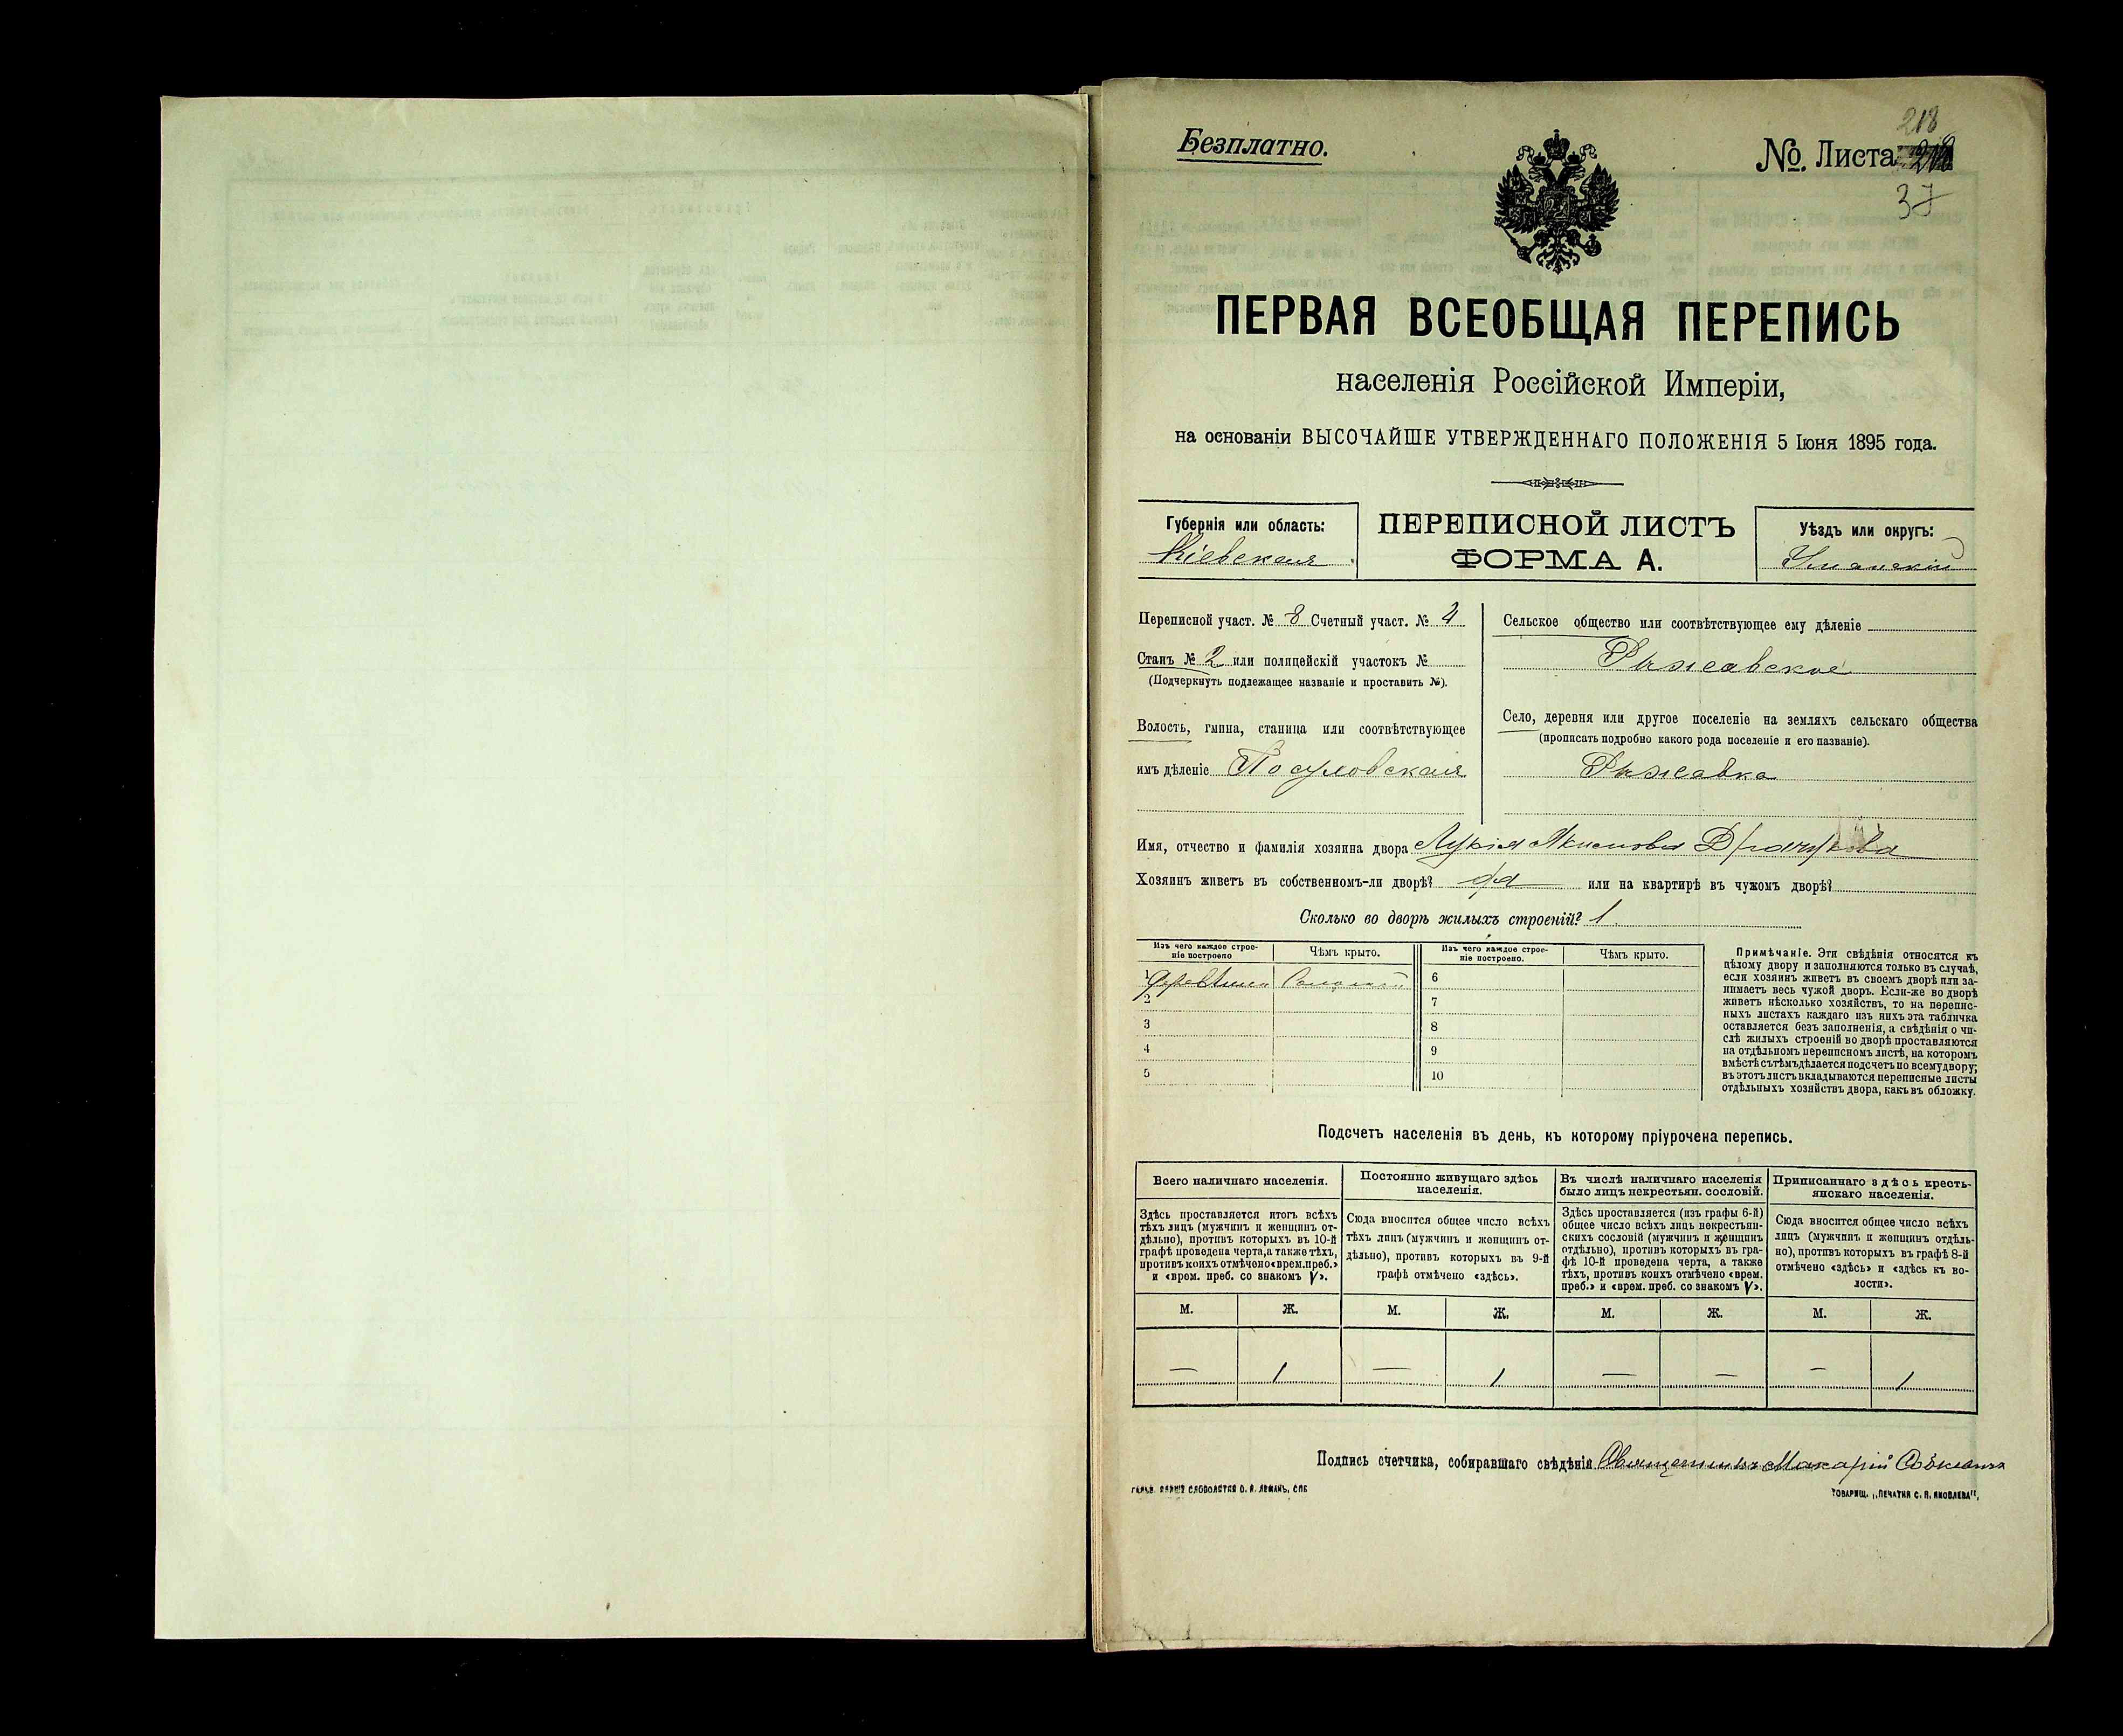 Безплатно.
218
№ Листа
37
ПЕРВАЯ ВСЕОБЩАЯ ПЕРЕПИСЬ
населенія Россійской Имперіи,
на основаніи ВЫСОЧАЙШЕ УТВЕРЖДЕННАГО ПОЛОЖЕНІЯ 5 Іюня 1895 года.
Губернія или область:
Кіевская
ПЕРЕПИСНОЙ ЛИСТЪ
ФОРМА А.
Уѣздъ или округъ:
Уманскій
Переписной участ. № 8 Счетный участ. № 4
Станъ № 2 или полицейскій участокъ №
(Подчеркнуть подлежащее названіе и проставить №).
Волость, гмина, станица или соотвѣтствующее
имъ дѣленіе
Сельское общество или соотвѣтствующее ему дѣленіе
Рыжавское
Село, деревня или другое поселеніе на земляхъ сельскаго общества
(прописать подробно какого рода поселеніе и его названіе).
Рыжавка
Имя, отчество и фамилія хозяина двора Лукія Якимова
Хозяинъ живетъ въ собственномъ-ли дворѣ? да или на квартирѣ въ чужомъ дворѣ?
Сколько во дворѣ жилыхъ строеній? 1.
Изъ чего каждое строе-
ніе построено
Чѣмъ крыто.
Изъ чего каждое строе-
ніе построено.
Чѣмъ крыто.
1
6
2
7
3
8
4
9
5
10
Примѣчаніе. Эти свѣдѣнія относятся къ
цѣлому двору и заполняются только въ случаѣ,
если хозяинъ живетъ въ своемъ дворѣ или за-
нимаетъ весь чужой дворъ. Если-же во дворѣ
живетъ нѣсколько хозяйствъ, то на перепис-
ныхъ листахъ каждаго изъ нихъ эта табличка
оставляется безъ заполненія, а свѣдѣнія о чи-
слѣ жилыхъ строеній во дворѣ проставляются
на отдѣльномъ переписномъ листѣ, на которомъ
вмѣстѣ съ тѣмъ дѣлается подсчетъ по всему двору;
въ этотъ листъ вкладываются переписные листы
отдѣльныхъ хозяйствъ двора, какъ въ обложку.
Подсчетъ населенія въ день, къ которому пріурочена перепись.
Всего наличнаго населенія.
Постоянно живущаго здѣсь
населенія.
Въ числѣ наличнаго населенія
было лицъ некрестьян. сословій.
Приписаннаго здѣсь кресть-
янскаго населенія.
Здѣсь проставляется итогъ всѣхъ
тѣхъ лицъ (мужчинъ и женщинъ от-
дѣльно), противъ которыхъ въ 10-й
графѣ проведена черта, а также тѣхъ,
противъ коихъ отмѣчено «врем. преб.»
и «врем. преб. со знакомъ V».
Сюда вносится общее число всѣхъ
тѣхъ лицъ (мужчинъ и женщинъ от-
дѣльно), противъ которыхъ въ 9-й
графѣ отмѣчено «здѣсь».
Здѣсь проставляется (изъ графы 6-й)
общее число всѣхъ лицъ некрестьян-
скихъ сословій (мужчинъ и женщинъ
отдѣльно), противъ которыхъ въ гра-
фѣ 10-й проведена черта, а также
тѣхъ, противъ коихъ отмѣчено «врем.
преб.» и «врем. преб. со знакомъ V».
Сюда вносится общее число всѣхъ
лицъ (мужчинъ и женщинъ отдѣль-
но), противъ которыхъ въ графѣ 8-й
отмѣчено «здѣсь» и «здѣсь къ во-
лости».
М. Ж. М. Ж. М. Ж. М. Ж.
— 1 — 1 — — — 1
Подпись счетчика, собиравшаго свѣдѣнія Священникъ Макарій
ТОВАРИЩ. „ПЕЧАТНЯ С. П. ЯКОВЛЕВА",